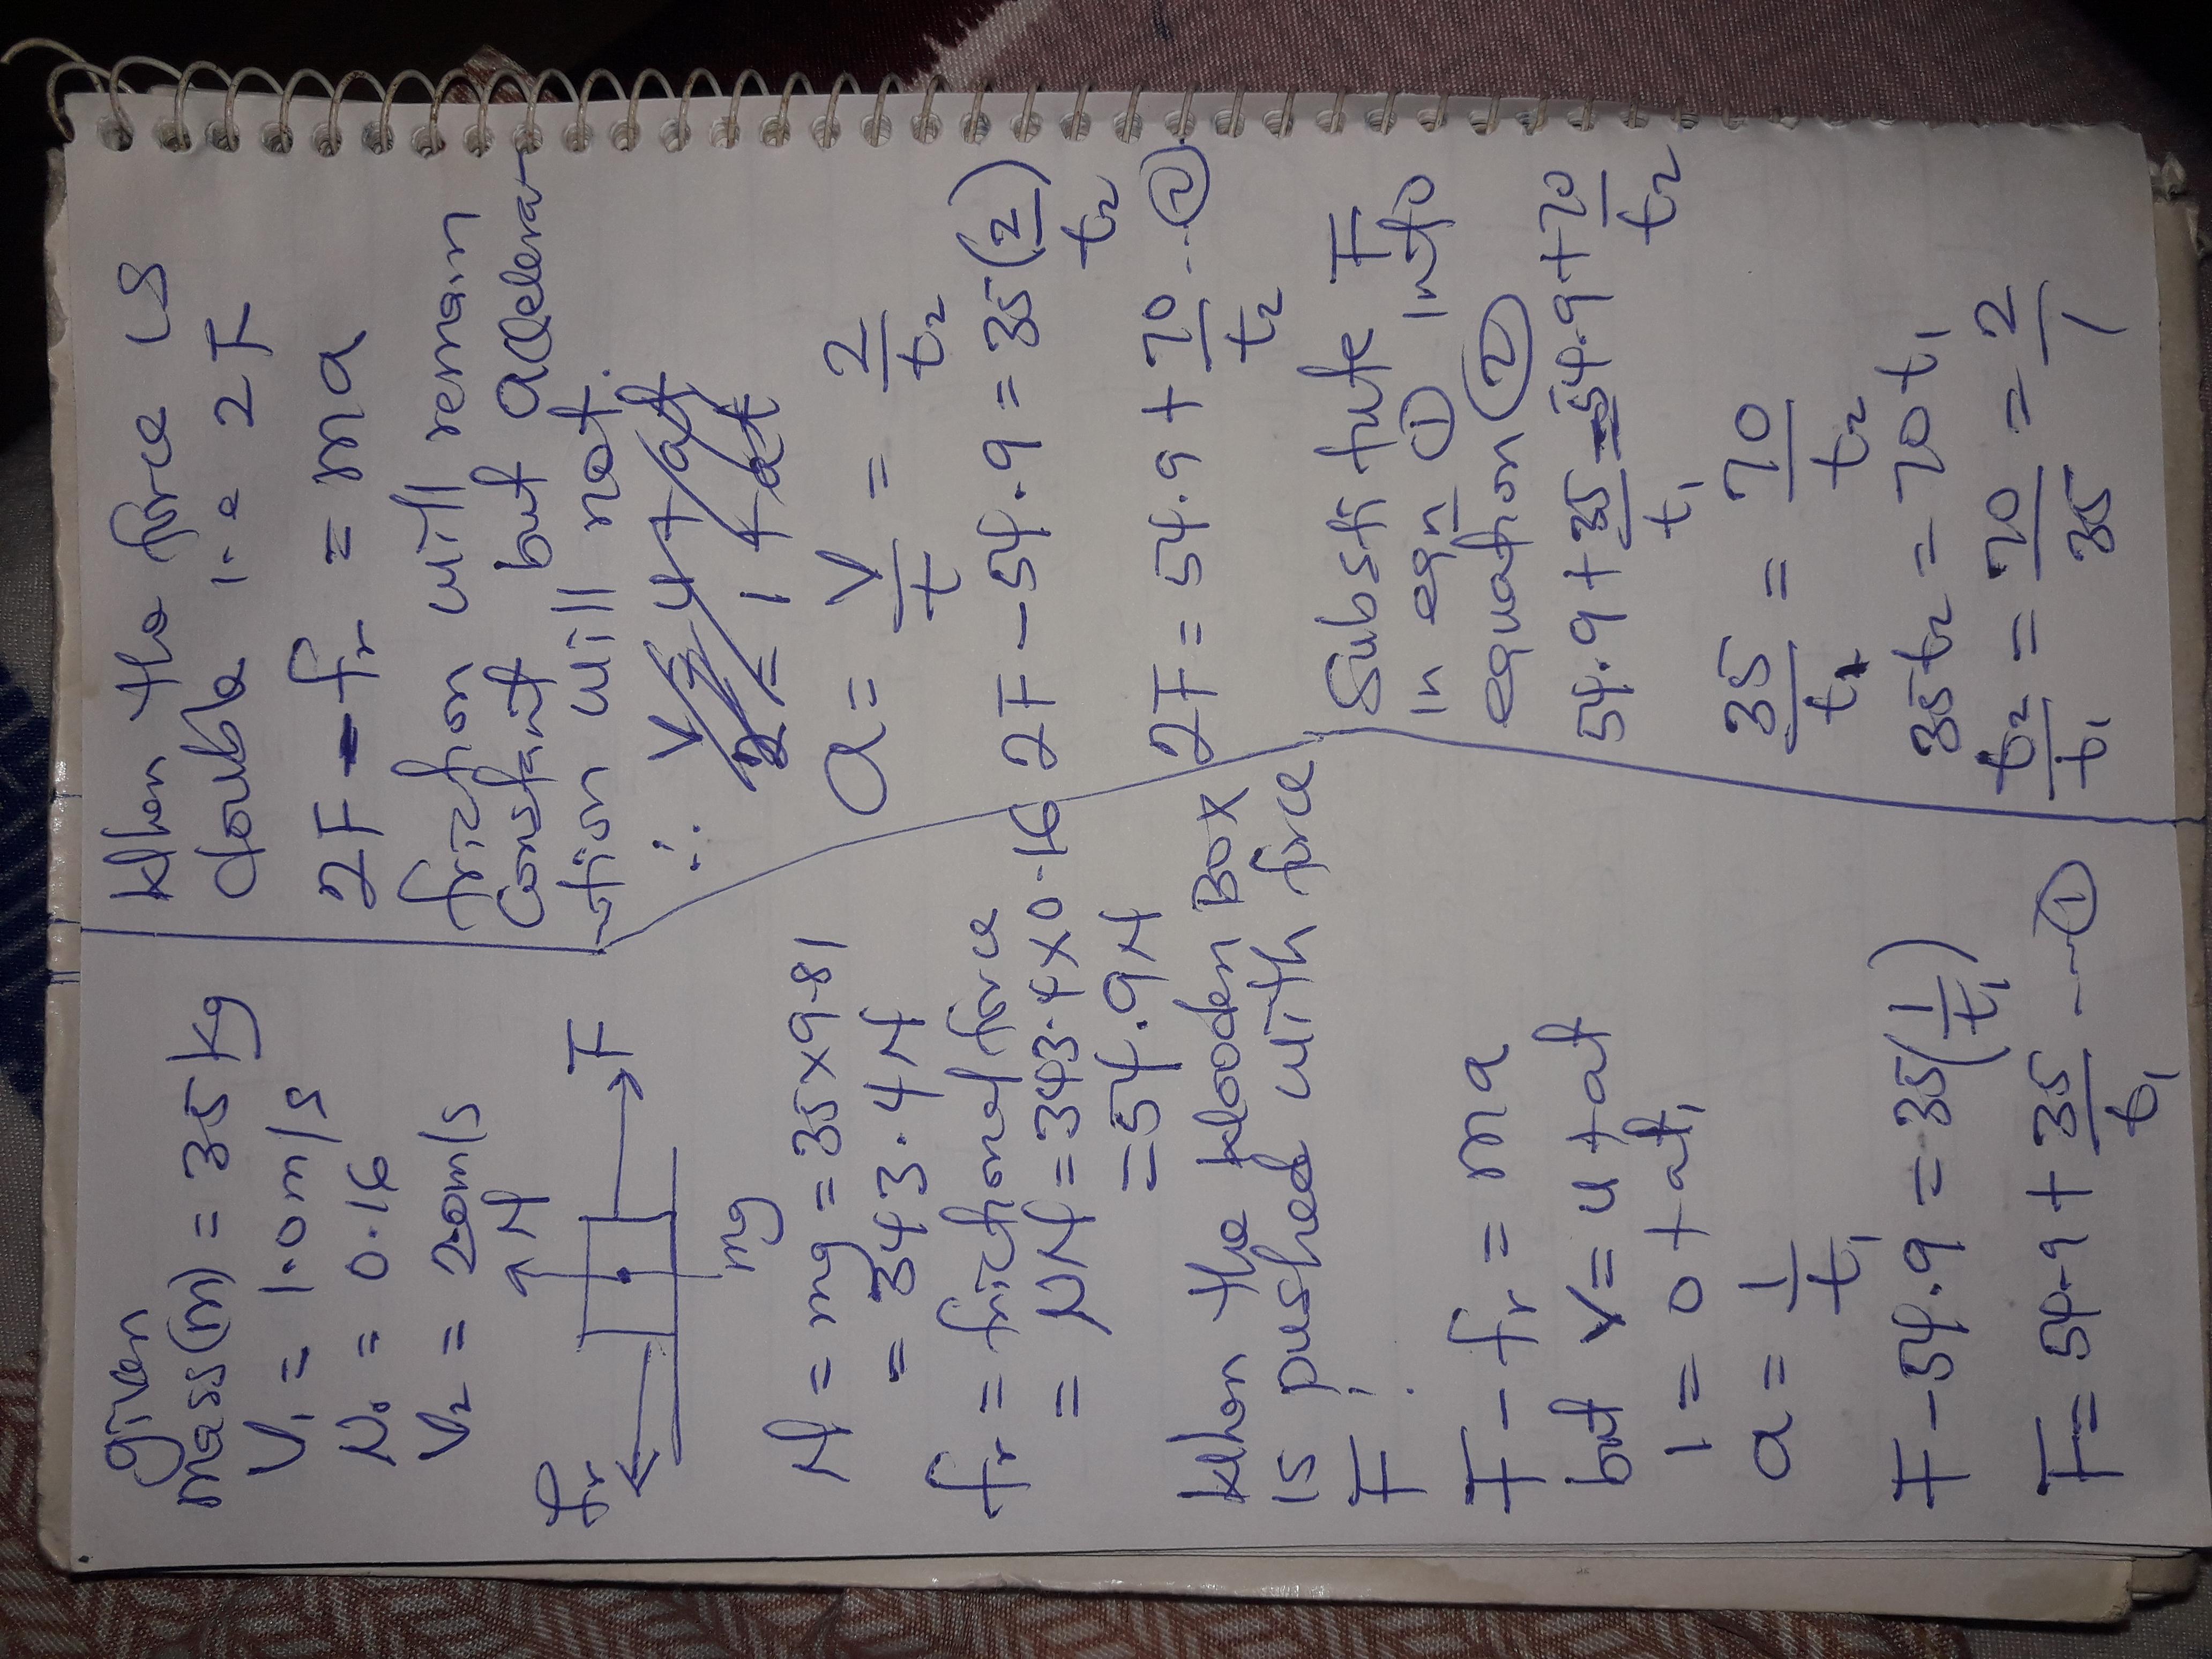 given
mass(m) = 35 kg
V₁ = 1.0 m/s
μ. = 0.16
V₂ = 2.0m/s
fr
N
F
mg
N = mg = 35 x 9.81
= 343.4 N
fr = frictional force
= μN = 343.4 x 0.16
= 54.9 N
When the wooden Box
is pushed with force
F.
F - fr = ma
but v = u + at
1 = 0 + at₁
a = 1/t₁
F - 54.9 = 35(1/t₁)
F = 54.9 + 35/t₁ --- ①
When the force is
double i.e 2F
2F - fr = ma
friction will remain
constant but accelera-
-tion will not.
∴ V = u + at
2 = 1 + at
a = V/t = 2/t₂
2F - 54.9 = 35(2/t₂)
2F = 54.9 + 70/t₂ --- ②
Substitute F
in eqn ① into
equation ②
54.9 + 35/t₁ = 54.9 + 70/t₂
35/t₁ = 70/t₂
35t₂ = 70t₁
t₂/t₁ = 70/35 = 2/1